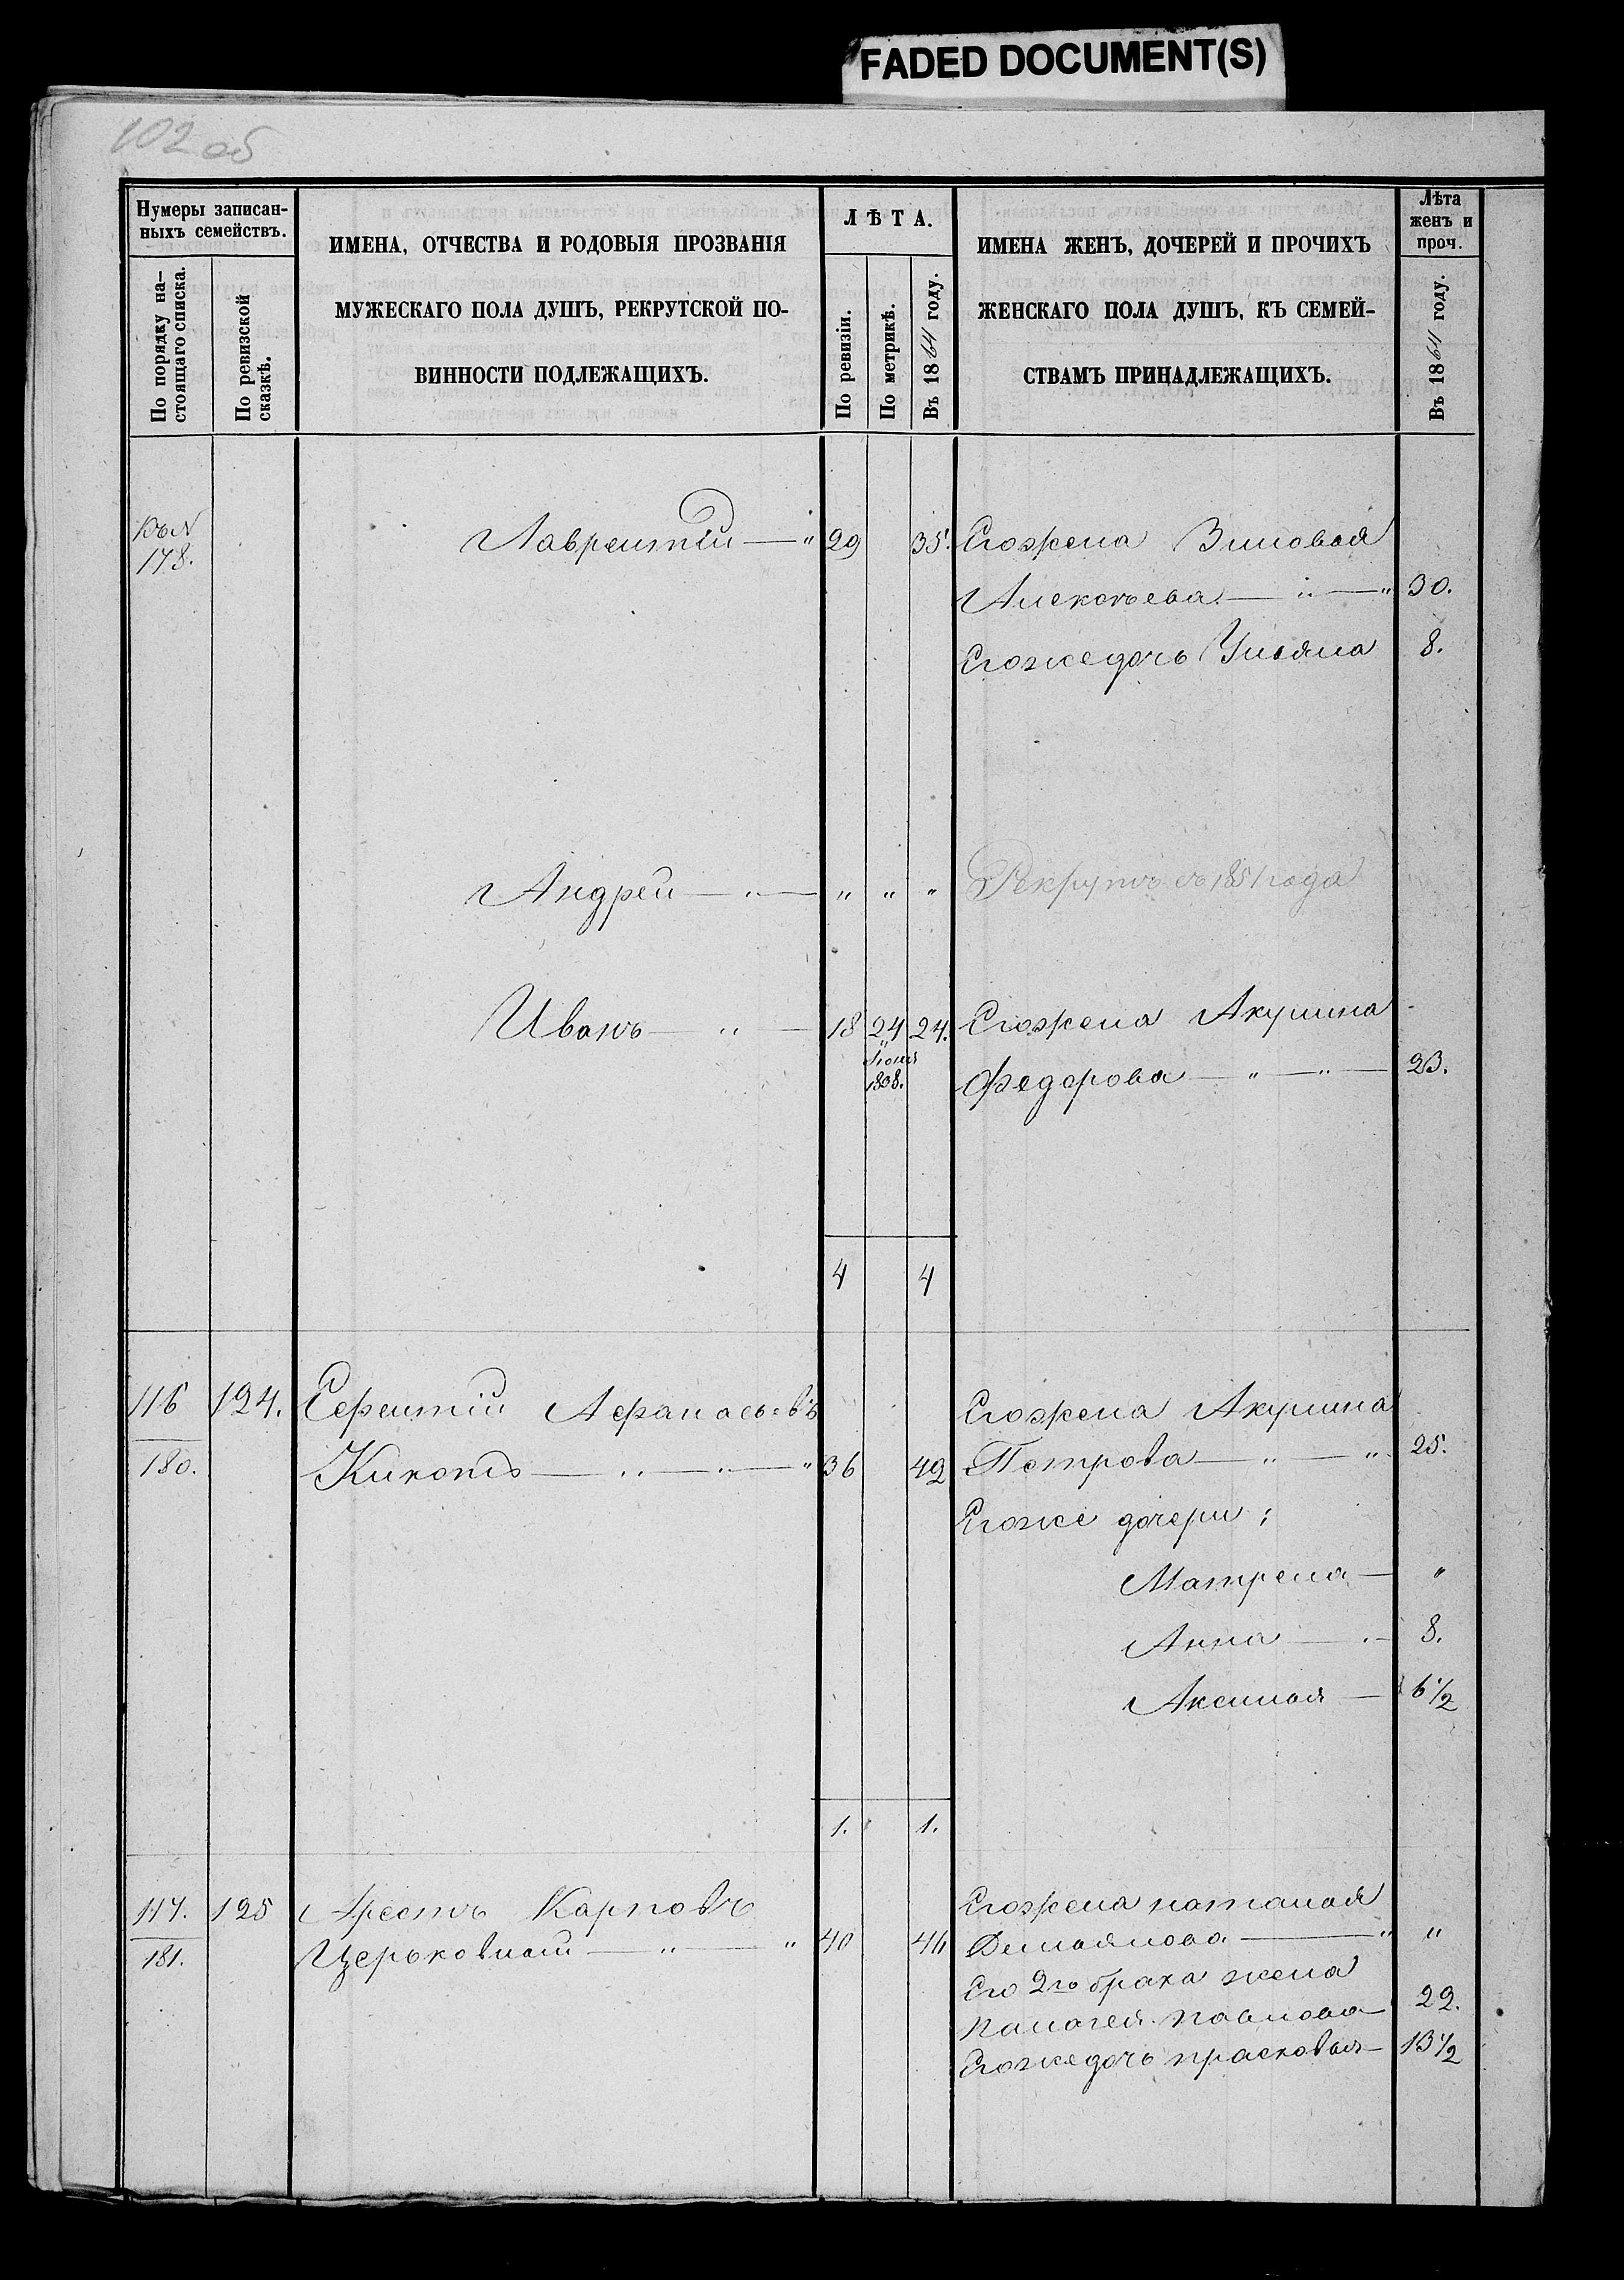 FADED DOCUMENT(S)
102 об
Нумеры записан-
ныхъ семействъ.
По порядку на-
стоящаго списка.
По ревизской
сказкѣ.
ИМЕНА, ОТЧЕСТВА И РОДОВЫЯ ПРОЗВАНІЯ
МУЖЕСКАГО ПОЛА ДУШЪ, РЕКРУТСКОЙ ПО-
ВИННОСТИ ПОДЛЕЖАЩИХЪ.
ЛѢТА.
По ревизіи.
По метрикѣ.
Въ 1864 году.
ИМЕНА ЖЕНЪ, ДОЧЕРЕЙ И ПРОЧИХЪ
ЖЕНСКАГО ПОЛА ДУШЪ, КЪ СЕМЕЙ-
СТВАМЪ ПРИНАДЛЕЖАЩИХЪ.
Лѣта
женъ и
проч.
Въ 1864 году.
Къ N
178.
Лаврентій — " 29 35. Его жена Зиновья
Алексѣева — " — " 30.
Его же дочь Ульяна 8.
Андрей — " — " " " Рекрутъ съ 1851 года
Иванъ — " — 18 24 24. Его жена Акулина
Іюня
1838.
Федорова — " — " — 23.
4 4
116 124. Терентій Афанасьевъ Его жена Акулина
180. Кикоть — " — " — " 36 42 Петрова — " — " 25.
Его же дочери:
Матрена — "
Анна — " — 8.
Аксинья — 6 1/2
1. 1.
117. 125 Арестъ Карповъ Его жена наталья
181. Церьковный — " — " 40 46 Демьянова — " "
Его 2го брака жена
палагея павлова 22.
Его же дочь прасковья — 13 1/2